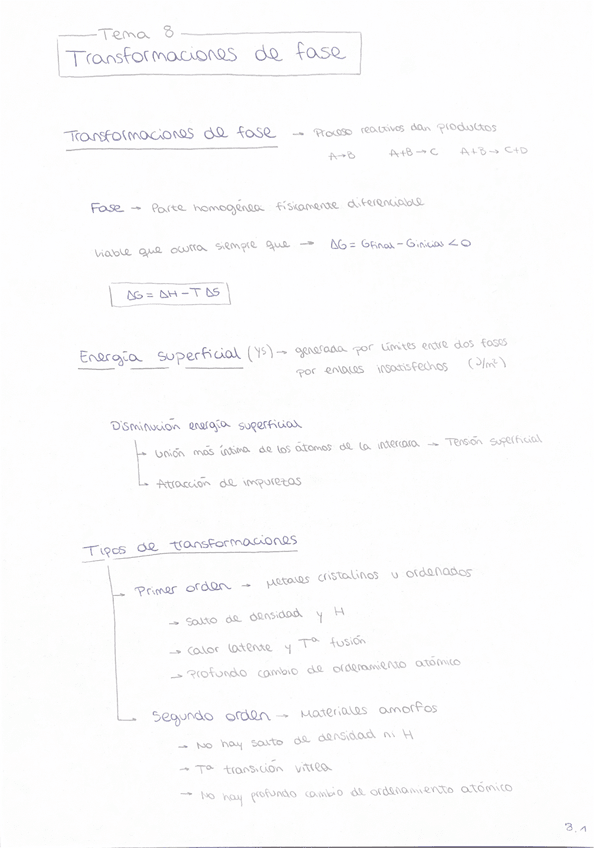 Tema 8
Transformaciones de fase
Transformaciones de fase → Proceso reactivos dan productos
A→B A+B→C A+B→C+D
Fase → Parte homogénea físicamente diferenciable
Viable que ocurra siempre que → ΔG = Gfinal - Ginicial < 0
ΔG = ΔH - T ΔS
Energía superficial (γs) → generada por límites entre dos fases
por enlaces insatisfechos (J/m²)
Disminución energía superficial
→ Unión más íntima de los átomos de la intercara → Tensión superficial
→ Atracción de impurezas
Tipos de transformaciones
→ Primer orden → Metales cristalinos u ordenados
→ Salto de densidad y H
→ Calor latente y Tª fusión
→ Profundo cambio de ordenamiento atómico
→ Segundo orden → Materiales amorfos
→ No hay salto de densidad ni H
→ Tª transición vítrea
→ No hay profundo cambio de ordenamiento atómico
3.1